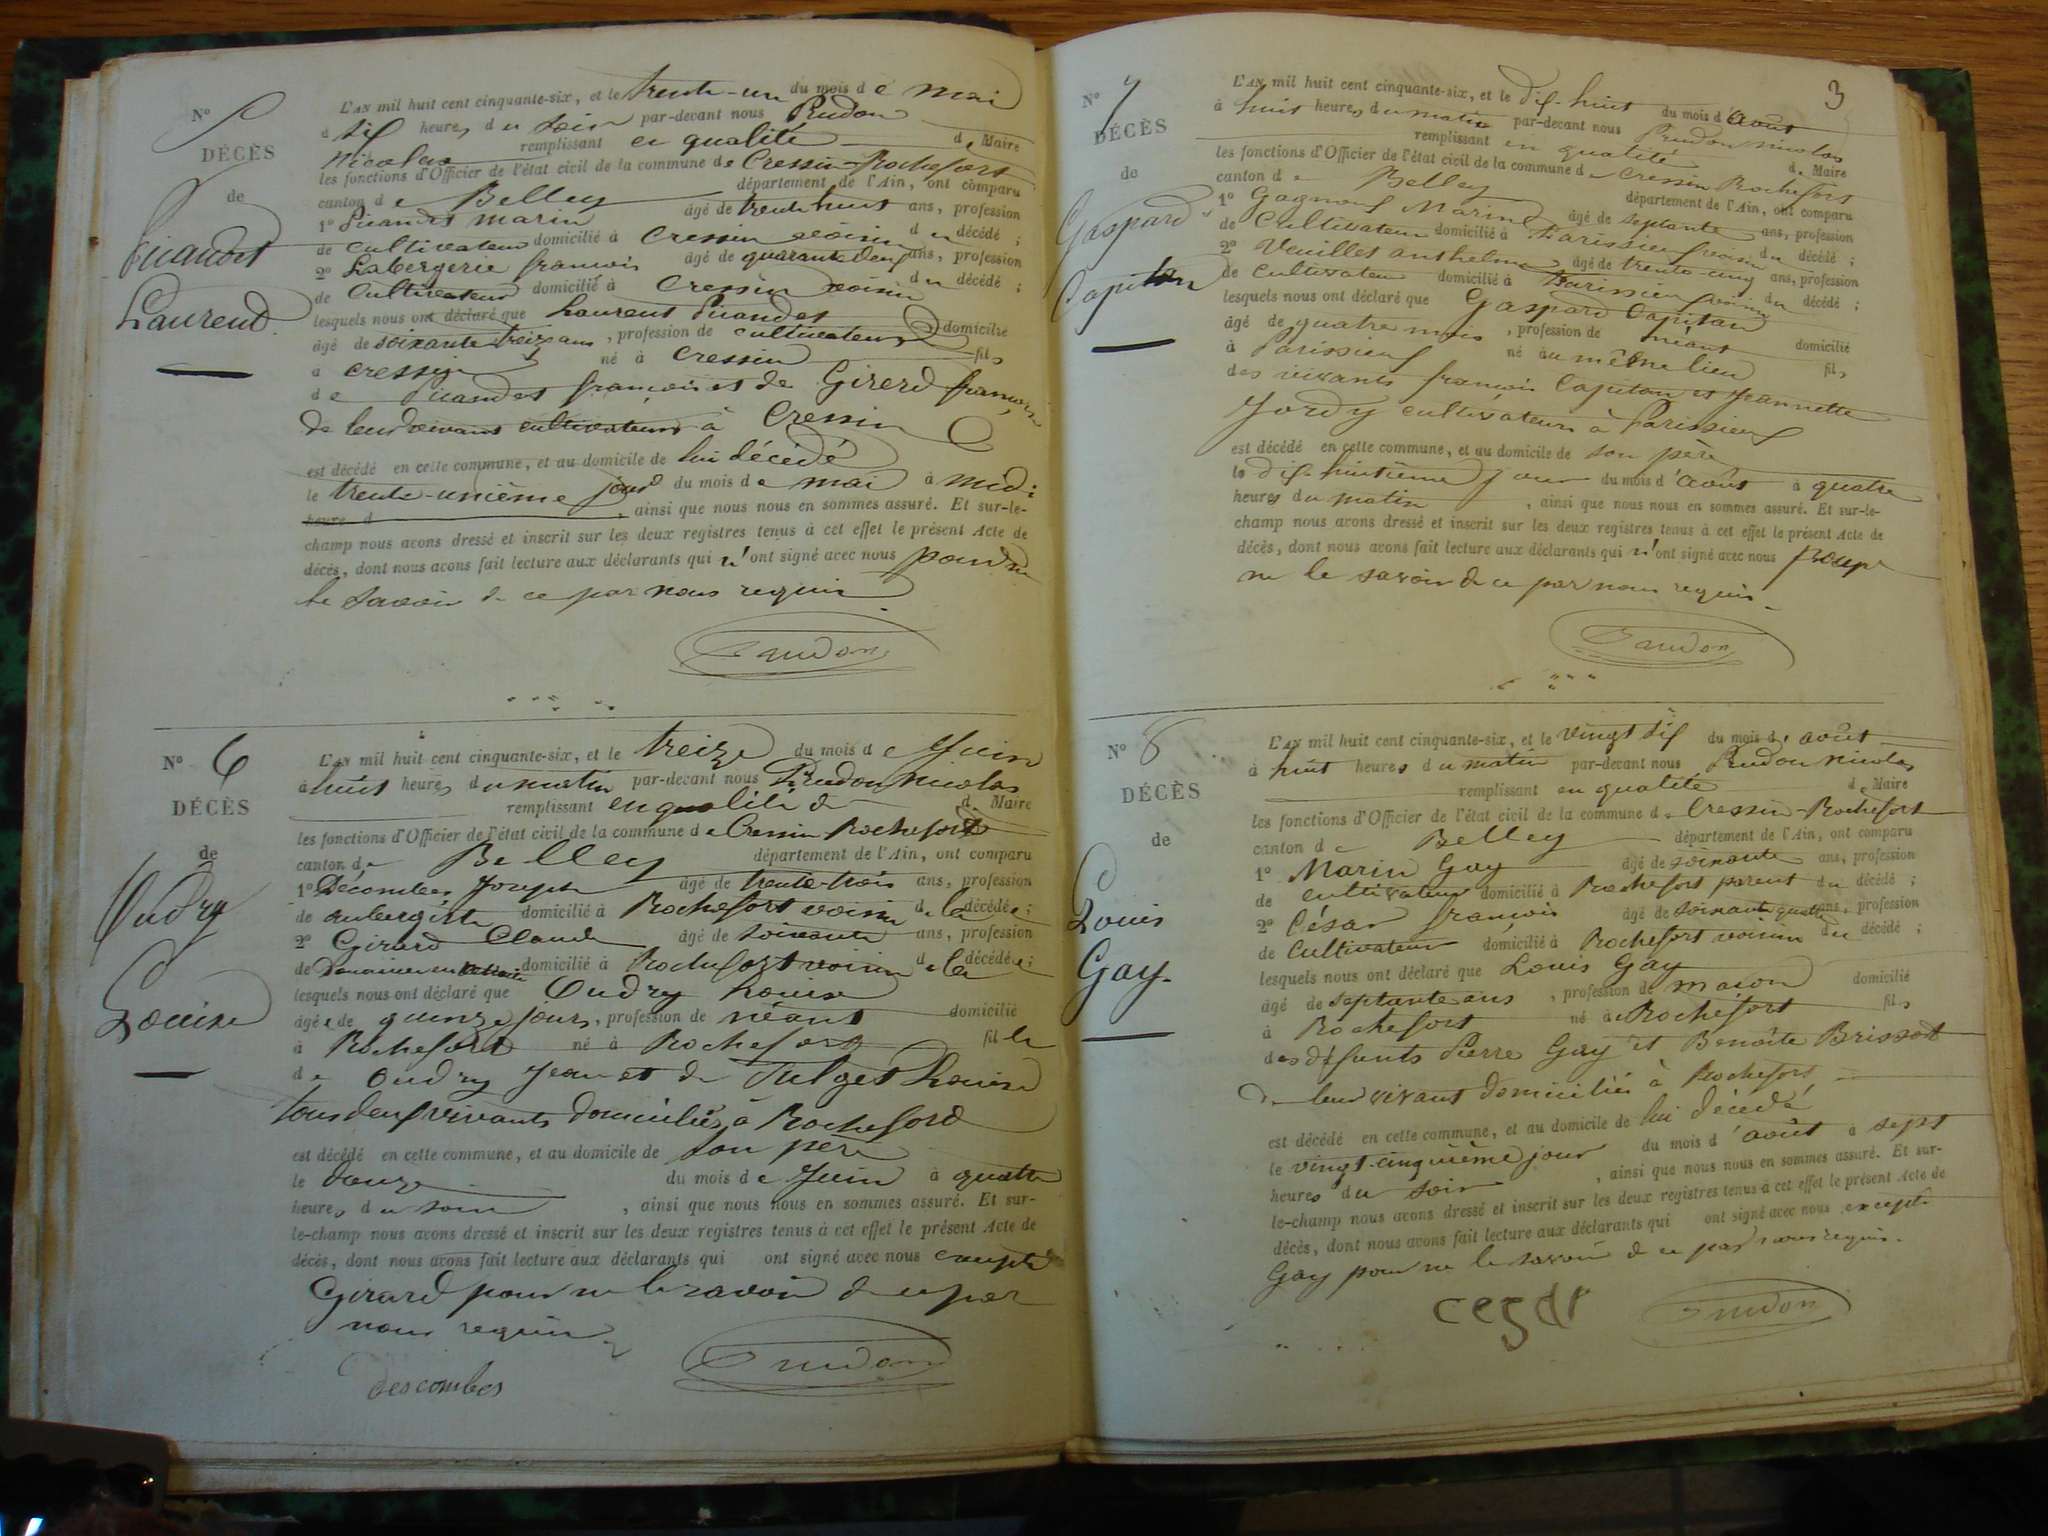 N° 5
DÉCÈS
de
Picandet
Laurend
L'AN mil huit cent cinquante-six, et le trente-un du mois de mai
à six heures du soir par-devant nous Prudon
Nicolas remplissant en qualité de Maire
les fonctions d'Officier de l'état civil de la commune de Cressin-Rochefort
canton de Belley département de l'Ain, ont comparu
1° Picandet marin âgé de trente huit ans, profession
de cultivateur domicilié à Cressin voisin du décédé ;
2° Labergerie francois âgé de quarante deux ans, profession
de Cultivateur domicilié à Cressin voisin du décédé ;
lesquels nous ont déclaré que Laurent Picandet
âgé de soixante treize ans, profession de cultivateur domicilié
à cressin né à Cressin fils
de Picandet françois et de Girerd
de leur vivans cultivateurs à Cressin
est décédé en cette commune, et au domicile de lui décédé
le trente-unième jour du mois de mai à midi
heure d , ainsi que nous nous en sommes assuré. Et sur-le-
champ nous avons dressé et inscrit sur les deux registres tenus à cet effet le présent Acte de
décès, dont nous avons fait lecture aux déclarants qui n'ont signé avec nous pour ne
le savoir de ce par nous requis
Prudon
N° 6
DÉCÈS
de
Oudry
Louise
L'AN mil huit cent cinquante-six, et le treize du mois de Juin
à huit heures du matin par-devant nous Prudon Nicolas
remplissant en qualité de Maire
les fonctions d'Officier de l'état civil de la commune de Cressin Rochefort
canton de Belley département de l'Ain, ont comparu
1° Décombes Joseph âgé de trente-trois ans, profession
de aubergiste domicilié à Rochefort voisin de la décédée ;
2° Girard Claude âgé de soixante ans, profession
de domicilié à Rochefort voisin de la décédée ;
lesquels nous ont déclaré que Oudry Louise
âgée de quinze jours, profession de néant domicilié
à Rochefort né à Rochefort fille
de Oudry Jean et de Louise
tous deux vivants domiciliés à Rocheford
est décédé en cette commune, et au domicile de son père
le douze du mois de Juin à quatre
heures du soir , ainsi que nous nous en sommes assuré. Et sur-
le-champ nous avons dressé et inscrit sur les deux registres tenus à cet effet le présent Acte de
décès, dont nous avons fait lecture aux déclarants qui ont signé avec nous excepté
Girard pour ne le savoir de ce par
nous requis
descombes Prudon
3
N° 7
DÉCÈS
de
Gaspard
Capitan
L'AN mil huit cent cinquante-six, et le dix-huit du mois d'août
à huit heures du matin par-devant nous Prudon Nicolas
remplissant en qualité de Maire
les fonctions d'Officier de l'état civil de la commune de Cressin Rochefort
canton de Belley département de l'Ain, ont comparu
1° Marin âgé de septante ans, profession
de Cultivateur domicilié à Parissieux voisin du décédé ;
2° Veuillet anthelme âgé de trente-cinq ans, profession
de cultivateur domicilié à Parissieux voisin du décédé ;
lesquels nous ont déclaré que Gaspard Capitan
âgé de quatre mois , profession de néant domicilié
à Parissieux né au même lieu fils
des vivants françois Capitan et Jeannette
Jordy cultivateurs à Parissieux
est décédé en cette commune, et au domicile de son père
le dix-huitième jour du mois d'août à quatre
heures du matin , ainsi que nous nous en sommes assuré. Et sur-le-
champ nous avons dressé et inscrit sur les deux registres tenus à cet effet le présent Acte de
décès, dont nous avons fait lecture aux déclarants qui n'ont signé avec nous pour
ne le savoir de ce par nous requis
Prudon
N° 8
DÉCÈS
de
Louis
Gay
L'AN mil huit cent cinquante-six, et le vingt six du mois d'août
à huit heures du matin par-devant nous Prudon nicolas
remplissant en qualité de Maire
les fonctions d'Officier de l'état civil de la commune de Cressin-Rochefort
canton de Belley département de l'Ain, ont comparu
1° Marin Gay âgé de soixante ans, profession
de cultivateur domicilié à Rochefort parent du décédé ;
2° César françois âgé de soixante quatre ans, profession
de Cultivateur domicilié à Rochefort voisin du décédé ;
lesquels nous ont déclaré que Louis Gay
âgé de septante ans , profession de maçon domicilié
à Rochefort né à Rochefort fils
des défunts Pierre Gay et Benoîte Brissot
de leur vivant domiciliés à Rochefort
est décédé en cette commune, et au domicile de lui décédé
le vingt-cinquième jour du mois d'août à sept
heures du soir , ainsi que nous nous en sommes assuré. Et sur-
le-champ nous avons dressé et inscrit sur les deux registres tenus à cet effet le présent Acte de
décès, dont nous avons fait lecture aux déclarants qui ont signé avec nous excepté
Gay pour ne le savoir de ce par nous requis.
cesar Prudon